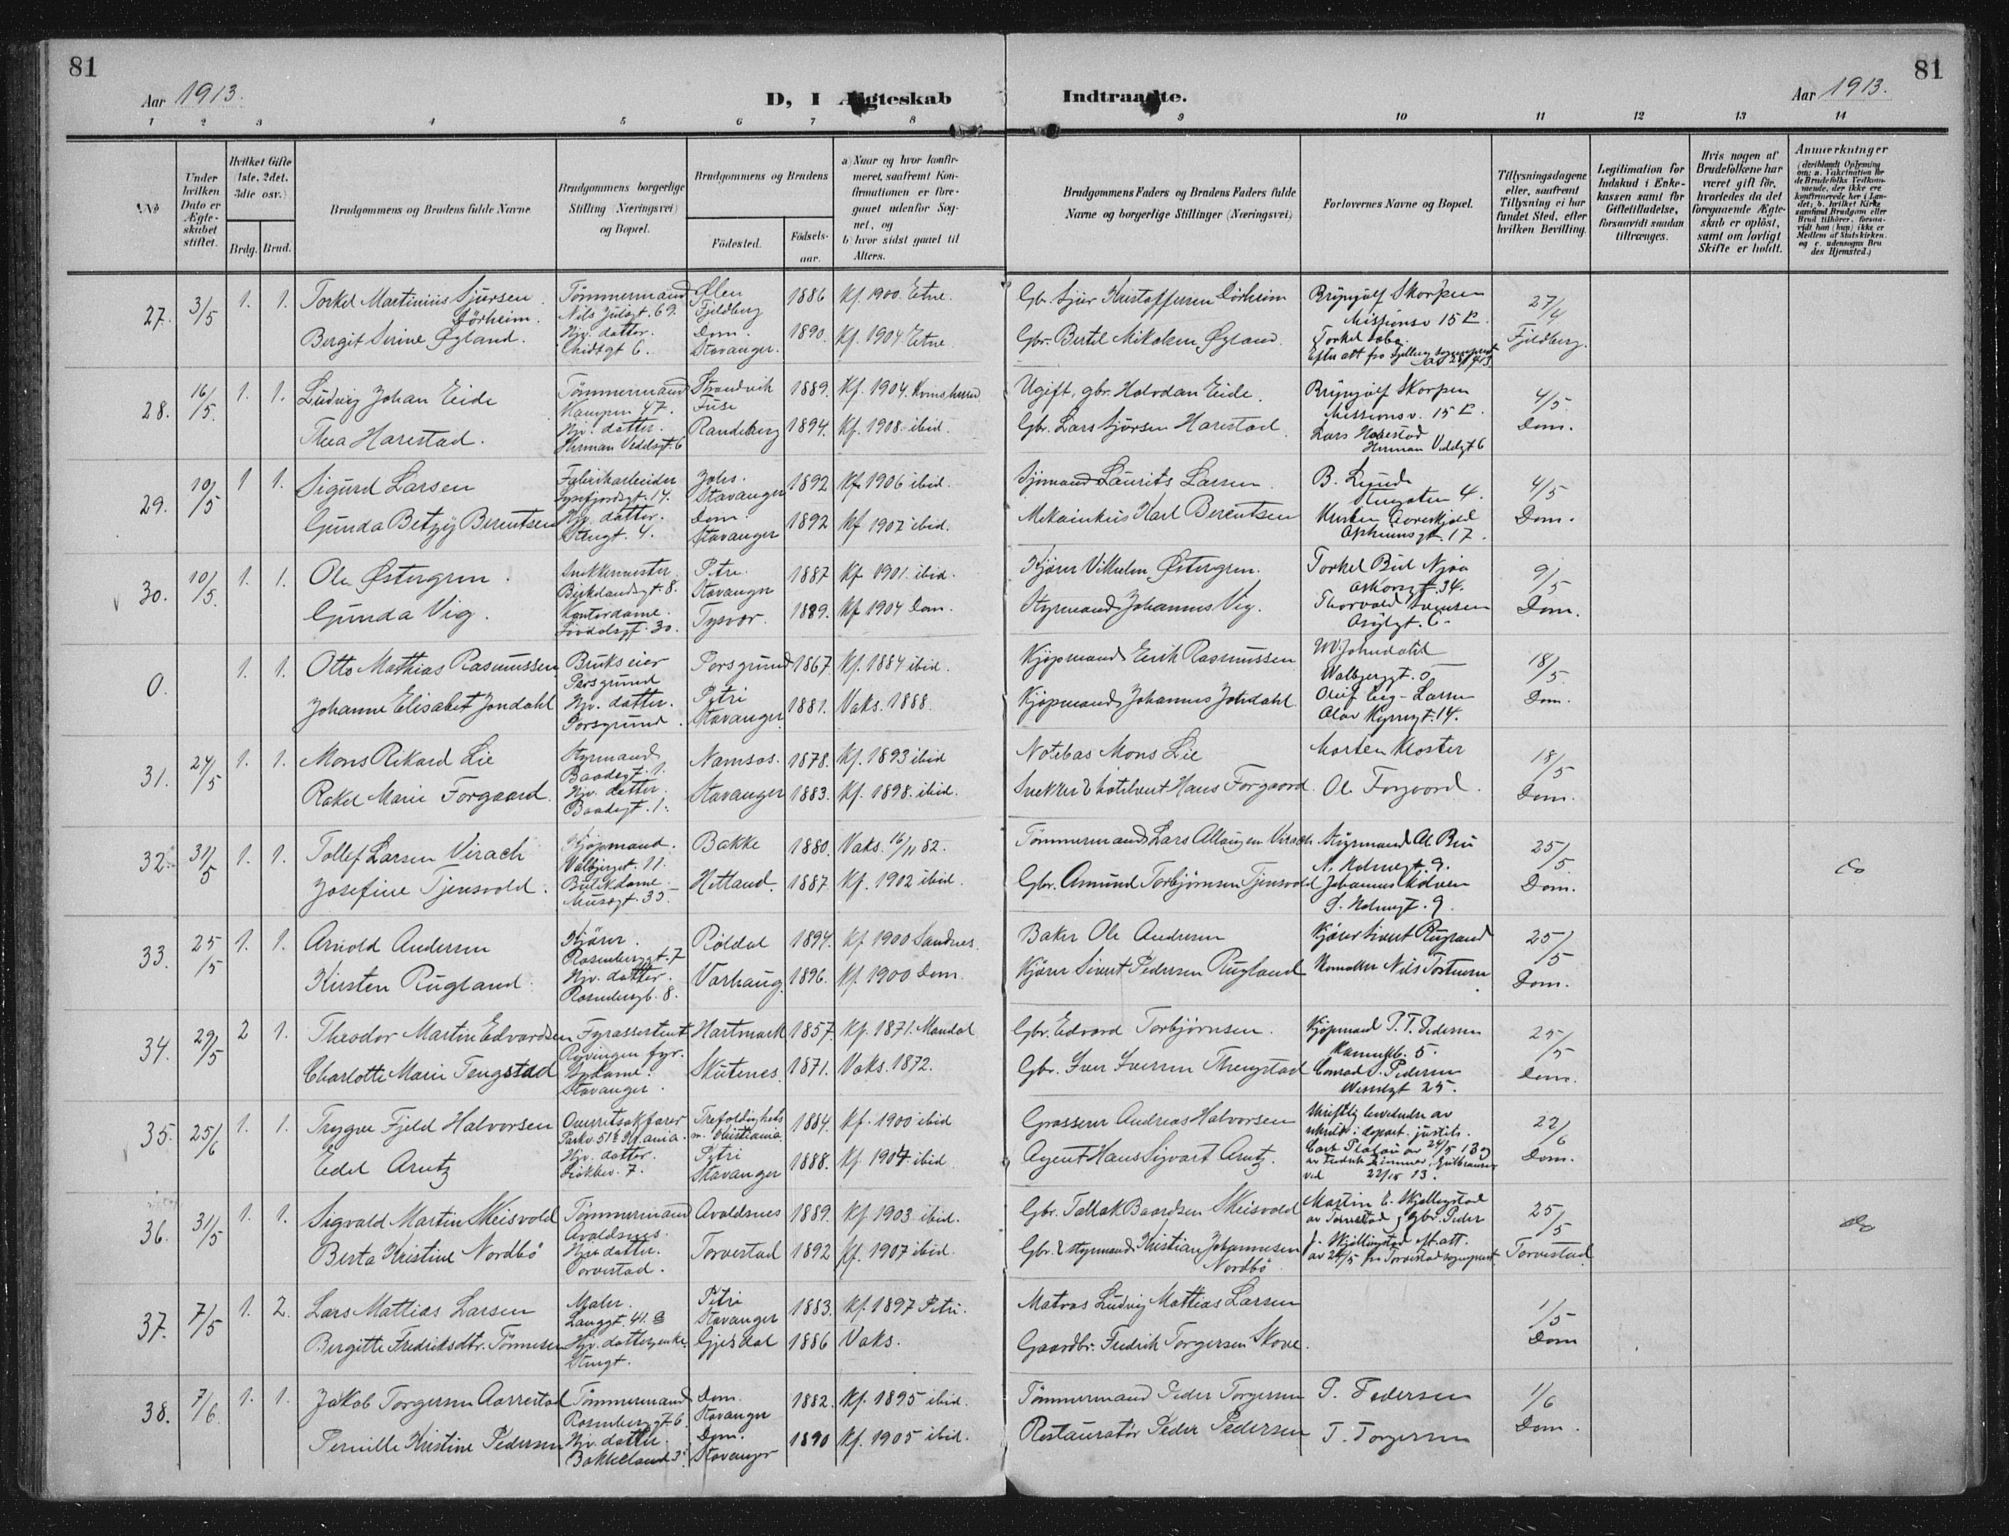 81
81
Aar 1913.
D, I Ægteskab Indtraadte.
Aar 1913.
1 2 3 4 5 6 7 8 9 10 11 12 13 14
No
Under hvilken Dato er Ægteskabet stiftet.
Hvilket Gifte (1ste, 2det, 3die osv.)
Brdg. Brud.
Brudgommens og Brudens fulde Navne
Brudgommens borgerlige Stilling (Næringsvei) og Bopæl.
Brudgommens og Brudens
Fødested.
Fødselsaar.
a) Naar og hvor konfirmeret, saafremt Konfirmationen er foregaaet udenfor Sognet, og
b) hvor sidst gaaet til Alters.
Brudgommens Faders og Brudens Faders fulde Navne og borgerlige Stillinger (Næringsvei)
Forlovernes Navne og Bopæl.
Tillysningsdagene eller, saafremt Tillysning ei har fundet Sted, efter hvilken Bevilling.
Legitimation for Indskud i Enkekassen samt for Giftetilladelse, forsaavidt saadan tiltrænges.
Hvis nogen af Brudefolkene har været gift før, hvorledes da det foregaaende Ægteskab er opløst, samt om lovligt Skifte er holdt.
Anmerkninger
27. 3/5 1. 1. Torkel Martinius Sjursen Dörheim. Tømmermand Nils Juelsgt. 69. Ølen Fjeldberg 1886 Kf. 1900. Etne. Gbr. Sjur Kristoffersen Dörheim Brynjulf Skorpen Missionsv 15 B. 27/4
Bergit Serine Øyland. Hjv. datter. Dom. Stavanger. 1890. Kf. 1904 Etne. Gbr. Bertil Mikalsen Øyland. Fjeldberg.
28. 16/5. 1. 1. Ludvig Johan Eide Tømmermand Kampen 47. Strandvik Fuse 1889. Kf. 1904. Ugift, gbr. Halvdan Eide. Brynjulf Skorpen Missionsv. 15 B. 4/5
Thea Harestad. Hjv. datter. Herman Vedelsgt. 6 Randeberg 1894. Kf. 1908. ibid. Gbr. Lars Sjørsen Harestad. Lars Harestad Herman Vedelsgt 6 Dom.
29. 10/5 1 1. Sigurd Larsen Fabrikarbeider Lysefjordsgt. 14. Johs. Stavanger 1892 Kf 1906 ibid. Sjømand Laurits Larsen. B. Lunde Stengaten 4. 4/5
Gunda Betzy Berentsen Hjv. datter. Stengt. 4. Dom. Stavanger 1892 Kf 1907 ibid. Mekanikus Karl Berentsen Dom.
30. 10/5. 1. 1. Ole Østergren. Snekkermester. Birkelandsgt. 8. Petri Stavanger 1887 Kf 1901. ibid. Kjører Vilhelm Østergren. 9/5
Gunda Vig. Kontordame. Tysvær. 1889. Kf 1904 Dom. Styrmand Johannes Vig. Thorvald Iversen Dom.
0. 1. 1. Otto Mathias Rasmussen Brukseier Porsgrund Porsgrund 1867. Kf. 1884 ibid. Kjøpmand Erik Rasmussen Valbjergt. 5 18/5.
Johanne Elisabet Jondahl Hjv. datter. Porsgrund. Petri Stavanger 1881. Vaks. 1888. Kjøpmand Johannes Johdahl Olav Kyrresgt. 14. Dom.
31. 24/5 1. 1. Mons Rikard Lie Styrmand Baadsgt. 1. Namsos. 1878. Kf. 1893 ibid Notebas Mons Lie Morten Kloster 18/5
Rakel Marie Forgaard. Hjv. datter. Baadsgt. 1. Stavanger 1883. Kf. 1898. ibid. Snekker & hotelvert Hans Forgaard. Ole Forgaard. Dom.
32. 31/5 1. 1. Tollef Larsen Virach Kjøpmand. Valbjergt. 11. Bakke 1880. Vaks. 16/11 82. Tømmermand Lars Allaugsen Virach. Styrmand Ol. Bru N. Holmegt. 9. 25/5
Josefine Tjensvold. Butikdame. Musegt. 33 Hetland. 1887. Kf. 1902 ibid. Gbr. Asmund Torbjørnsen Tjensvold Johannes Kolnes S. Holmegt. 9. Dom.
33. 25/5 1. 1. Arnold Andersen Kjører. Rosenberggt. 7 Røldal 1894. Kf. 1900 Sandnes. Baker Ole Andersen Kjører Sivert Rugland 25/5
Kirsten Rugland. Hjv. datter. Rosenbergt. 8. Varhaug. 1896. Kf. 1900 Dom. Kjører Sivert Pedersen Rugland Dom.
34. 29/5 2 1. Theodor Martin Edvardsen Fyrassistent Ryvingen fyr. Hartmark 1857. Kf. 1871. Mandal Gbr. Edvard Torbjørnsen. Kjøpmand P. T. Pedersen 25/5
Charlotte Marie Tengstad Stavanger. Skutenes. 1871. Vaks. 1872. Gbr. Iver Iversen Thengstad Conrad S. Pedersen Wesselgt 25. Dom.
35. 25/6 1. 1. Trygve Fjeld Halvorsen Overretsakfører Trefoldigheds m. Kristiania. 1884. Kf. 1900 ibid Grosserer Andreas Halvorsen 22/6
Edel Arntz Hjv. datter. 7. Petri Stavanger 1888. Kf. 1904. ibid. Agent Hans Sigvart Arntz. Dom.
36. 31/5 1. 1. Sigvald Martin Skeisvold Tømmermand Avaldsnes. Avaldsnes 1889. Kf. 1903. ibid. Gbr. Tallak Baardsen Skeisvold 25/5
Berta Kristine Nordbö Hjv. datter. Torvestad. Torvestad 1892 Kf. 1907 ibid. Gbr. & styrmand Kristian Johannesen Nordbö Torvestad.
37. 7/5 1. 2. Lars Mattias Larsen Maler. Langgt. 41. B Petri Stavanger 1883. Kf. 1897 Petri. Matros Ludvig Mattias Larsen 1/5
Bergitte Fredriksdtr. Tønnesen Gjesdal 1886 Vaks. Gaardbr. Fredrik Torgersen Skove. Dom
38. 7/6 1. 1. Jakob Torgersen Aarrestad Tømmermand Rosenberggt. 6. Dom. Stavanger 1882. Kf. 1895 ibid. Tømmermand Peder Torgersen P. Pedersen 1/6
Pernille Kristine Pedersen Hjv. datter. Bakkeland 3. Dom. Stavanger 1890 Kf. 1905 ibid. Restauratør Peder Pedersen T. Torgersen Dom.